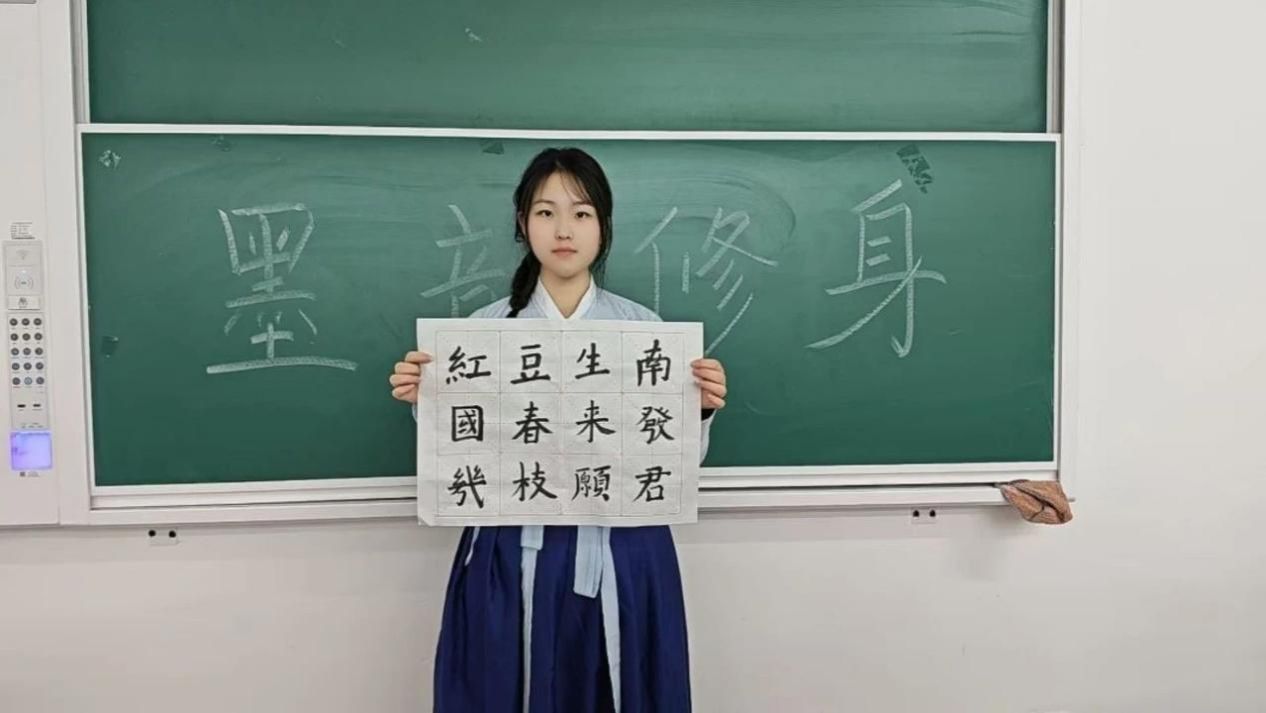 墨 修身
紅豆生南
國春来發
幾枝願君